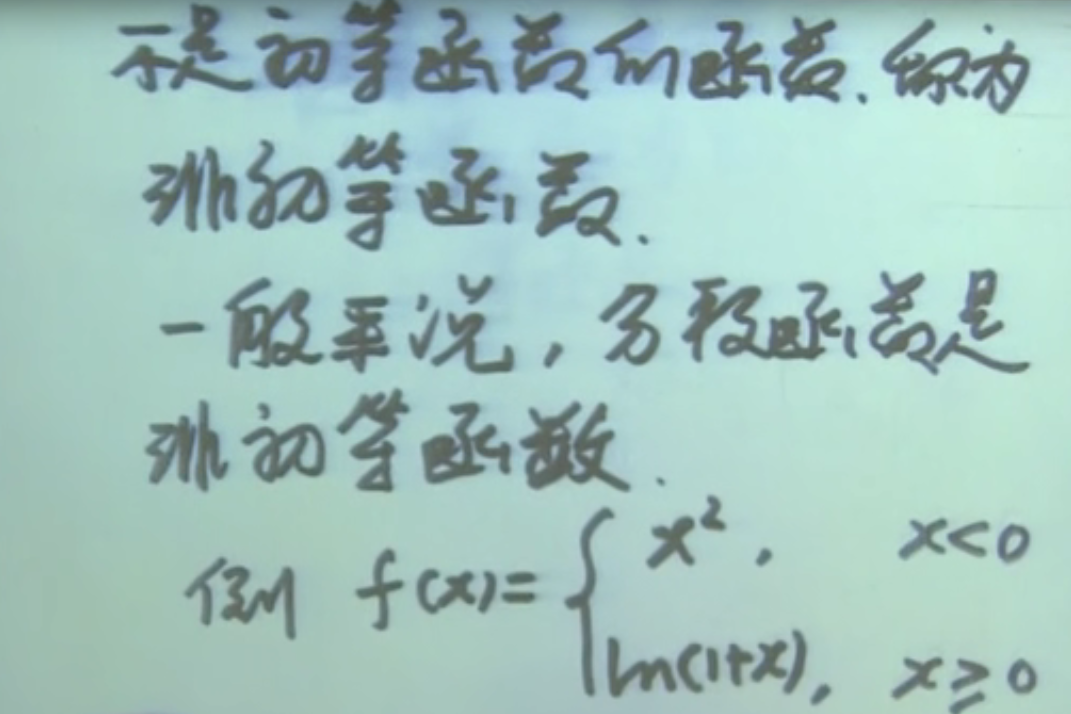 不是初等函数的函数.称为
非初等函数.
一般来说,分段函数是
非初等函数.
例 f(x)= { x², x<0
ln(1+x), x≥0